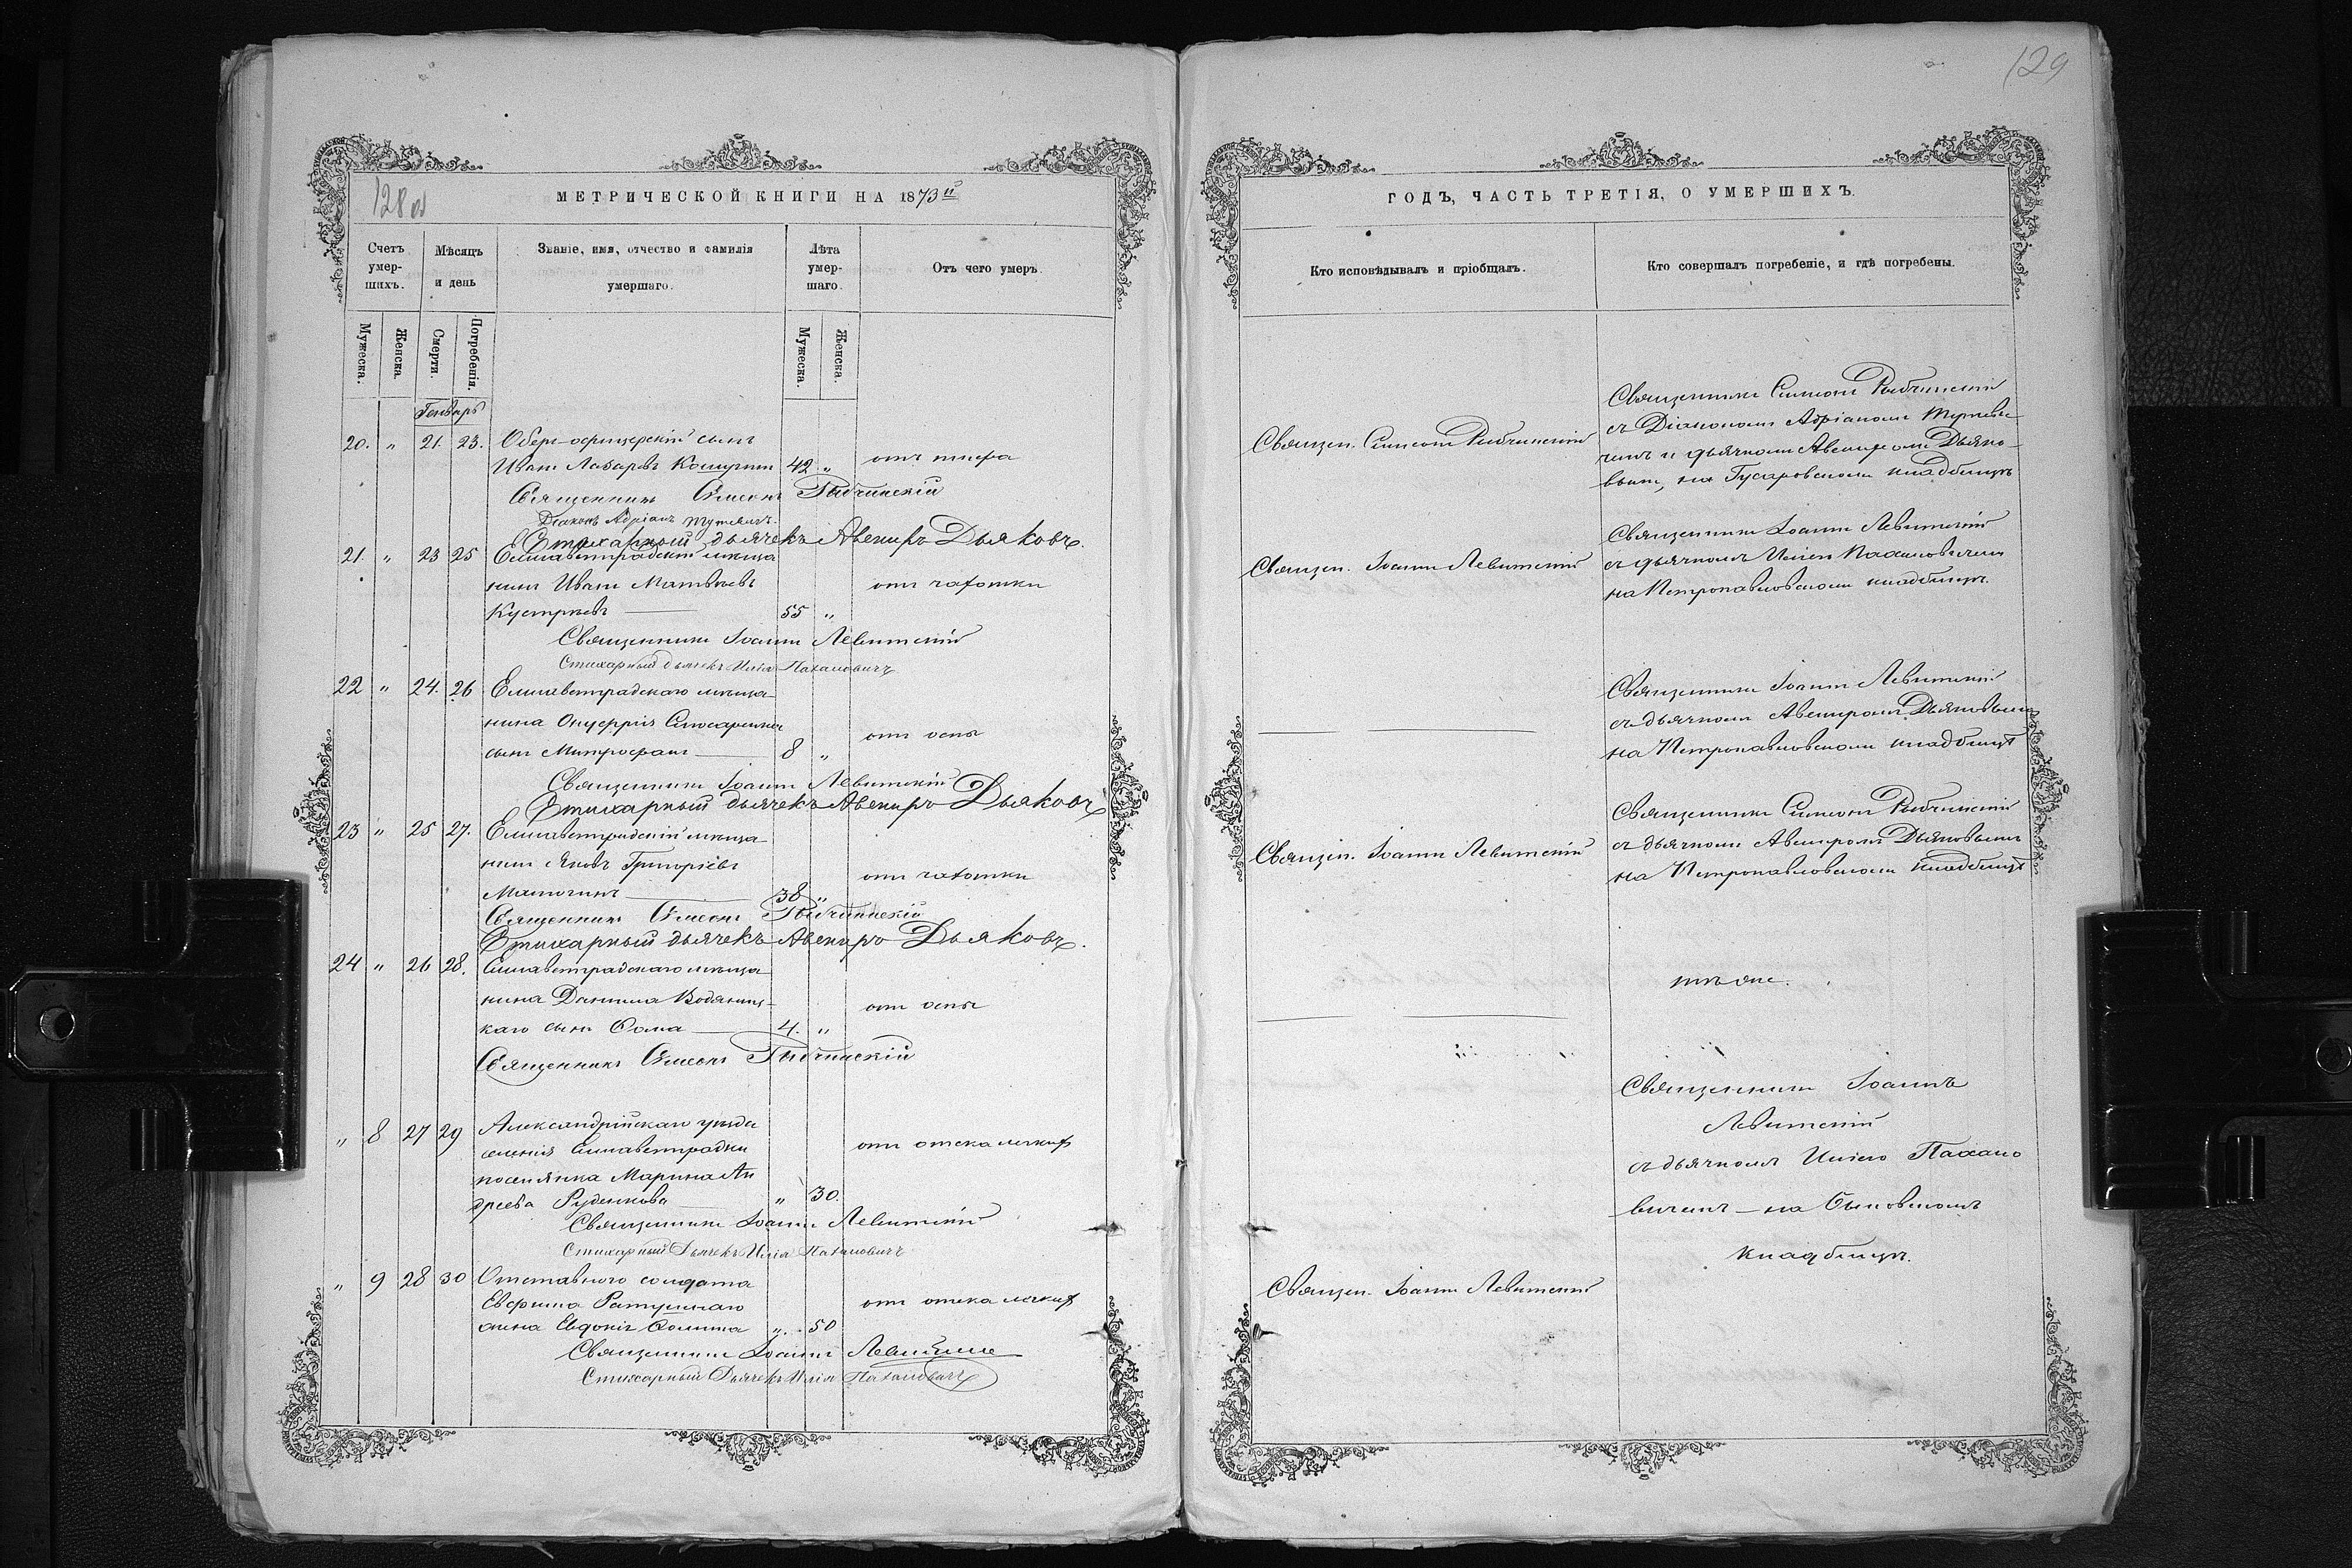 128 об
МЕТРИЧЕСКОЙ КНИГИ НА 1873й
Счетъ умер-шихъ.
Мѣсяцъ и день
Званіе, имя, отчество и фамилія умершаго.
Лѣта умер-шаго.
Отъ чего умеръ.
Мужеска.
Женска.
Смерти.
Погребенія.
Мужеска.
Женска.
Генварь
20. " 21. 23. Оберъ-офицерскій сынъ
Иванъ Лазаревъ 42 " отъ тифа
Священникъ Симеонъ Рыбчинскій
Діаконъ Адріанъ
Стихарный дьячекъ Авениръ Дьяковъ.
21. " 23 25 Елисаветградскій мѣща-
нинъ Иванъ Матвѣевъ отъ чахотки
55 "
Священникъ Іоаннъ Левитскій
Стихарный дьячекъ Илія Пахаловичъ
22 " 24. 26 Елисаветградскаго мѣща-
нина Онуфрія Слюсаренка отъ оспы
сынъ Митрофанъ 8 "
Священникъ Іоаннъ Левитскій
Стихарный дьячекъ Авениръ Дьяковъ
23 " 25 27. Елисаветградскій мѣща-
нинъ Яковъ Григоріевъ отъ чахотки
38 "
Священникъ Симеонъ Рыбчинскій
Стихарный дьячекъ Авениръ Дьяковъ.
24 " 26 28. Елисаветградскаго мѣща-
нина Даніила Водяниц- отъ оспы
каго сынъ Ѳома 4. "
Священникъ Симеонъ Рыбчинскій
" 8 27 29 Александрійскаго уѣзда
селенія Елисаветградки отъ отека легкихъ
поселянка Марина Ан
дреева Руденкова " 30.
Священникъ Іоаннъ Левитскій
Стихарный Дьячекъ Илія Пахаловичъ
" 9 28 30 Отставного солдата
отъ отека легкихъ
жена Евдокія Ѳомина " 50
Священникъ Іоаннъ Левитскій
Стихарный Дьячекъ Илія Пахаловичъ
129
ГОДЪ, ЧАСТЬ ТРЕТІЯ, О УМЕРШИХЪ.
Кто исповѣдывалъ и пріобщалъ.
Кто совершалъ погребеніе, и гдѣ погребены.
Священ. Симеонъ Рыбчинскій
Священникъ Симеонъ Рыбчинскій
съ Діакономъ Адріаномъ
и дьячкомъ Авениромъ Дьяко-
вымъ, на Гусаровскомъ кладбищѣ
Священ. Іоаннъ Левитскій
Священникъ Іоаннъ Левитскій
съ дьячкомъ Иліею Пахаловичемъ
на Петропавловскомъ кладбищѣ.
Священникъ Іоаннъ Левитскій
съ дьячкомъ Авениромъ Дьяковымъ
на Петропавловскомъ кладбищѣ
Священ. Іоаннъ Левитскій
Священникъ Симеонъ Рыбчинскій
съ дьячкомъ Авениромъ Дьяковымъ
на Петропавловскомъ кладбищѣ
тѣ же.
Священникъ Іоаннъ
Левитскій
съ дьячкомъ Иліею Пахало
вичемъ — на Быковскомъ
кладбищѣ.
Священ. Іоаннъ Левитскій